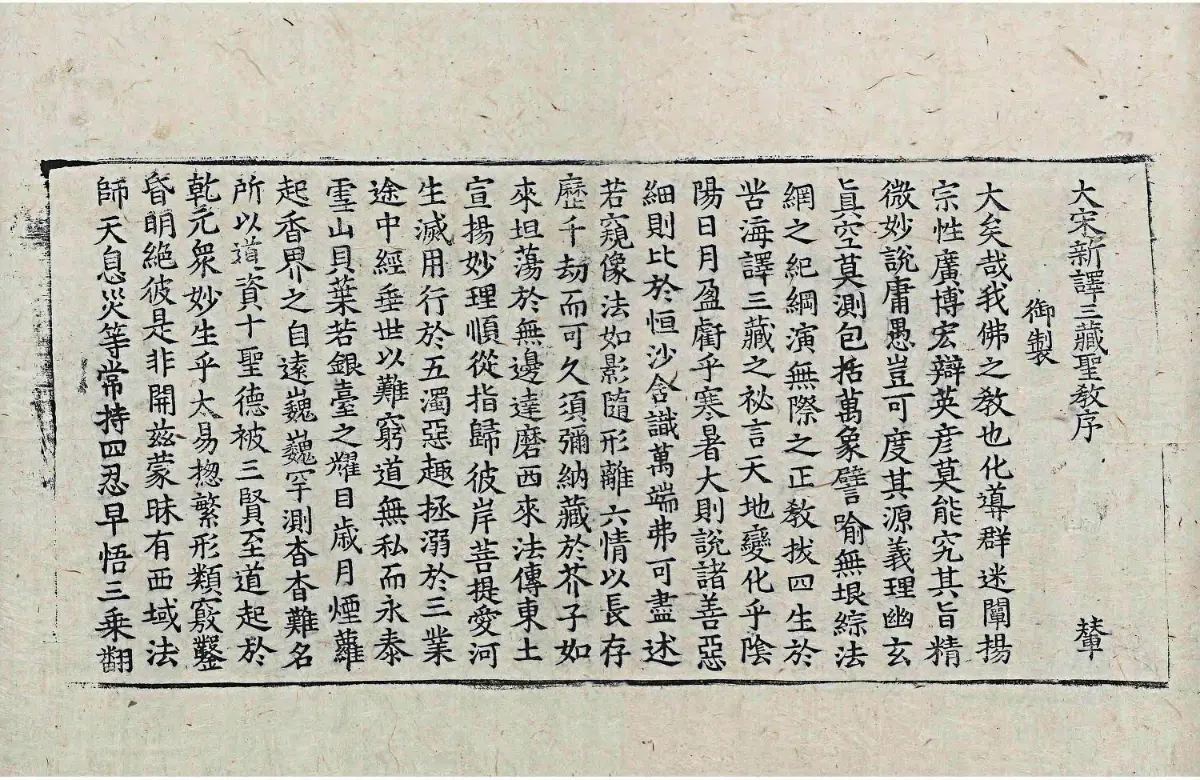 大宋新譯三藏聖教序　輦
御製
大矣哉我佛之教也化導群迷闡揚
宗性廣博宏辯英彥莫能究其旨精
微妙說庸愚豈可度其源義理幽玄
真空莫測包括萬象譬喻無垠綜法
網之紀綱演無際之正教拔四生於
苦海譯三藏之祕言天地變化乎陰
陽日月盈虧乎寒暑大則說諸善惡
細則比於恒沙含識萬端弗可盡述
若窺像法如影隨形離六情以長存
歷千劫而可久須彌納藏於芥子如
來坦蕩於無邊達磨西來法傳東土
宣揚妙理順從指歸彼岸菩提愛河
生滅用行於五濁惡趣拯溺於三業
途中經垂世以難窮道無私而永泰
雪山貝葉若銀臺之耀目歲月煙蘿
起香界之自遠巍巍罕測杳杳難名
所以道資十聖德被三賢至道起於
乾元衆妙生乎太易揔繁形類竅鑿
昏明絕彼是非開茲蒙昧有西域法
師天息災等常持四忍早悟三乘翻